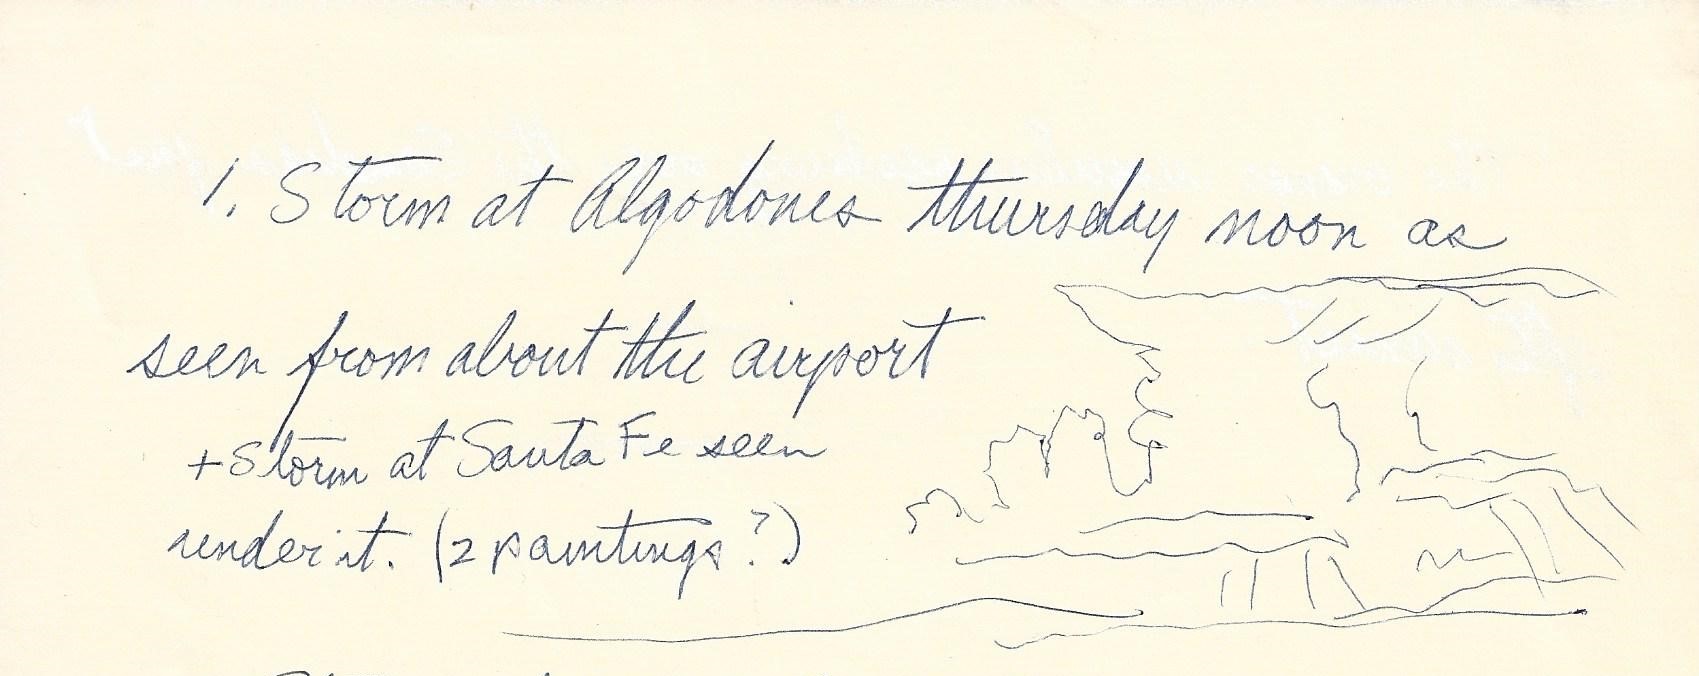 1. Storm at Algodones thursday noon as
seen from about the airport
+ Storm at Santa Fe seen
under it. (2 paintings?)